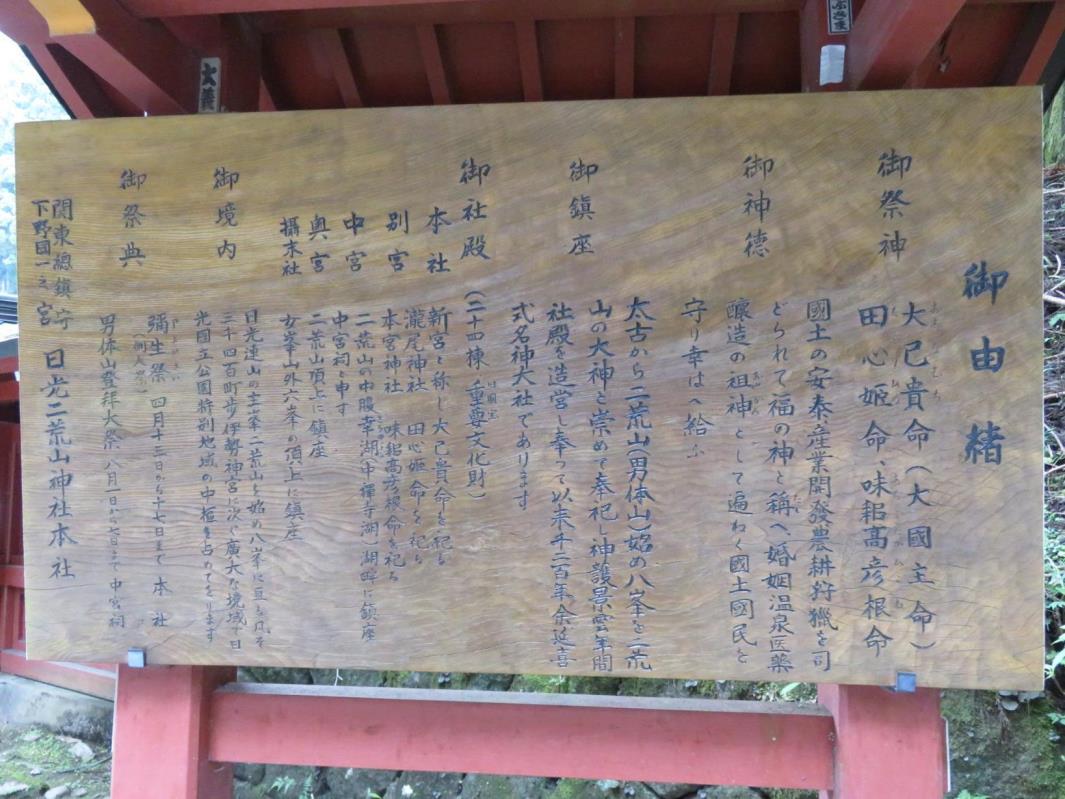 御由緒
御祭神
大己貴命(大國主命)
田心姫命、味耜高彦根命
御神徳
國土の安泰、産業開發農耕狩獵を司
どられて福の神と稱へ、婚姻温泉医薬
醸造の祖神として遍ねく國土國民を
守り幸はへ給ふ
御鎮座
太古から二荒山(男体山)始め八峯を二荒
山の大神と崇めて奉祀し神護景雲年間
社殿を造営し奉って以来千二百年余延喜
式名神大社であります
御社殿(二十四棟 重要文化財)
本社 新宮と称し大己貴命を祀る
別宮 瀧尾神社 田心姫命を祀る
本宮神社 味耜高彦根命を祀る
中宮 二荒山の中腹幸湖(中禅寺湖)湖畔に鎮座
中宮祠と申す
奥宮 二荒山頂上に鎮座
攝末社 女峯山外六峯の頂上に鎮座
御境内 日光連山の主峯二荒山を始め八峯に亘る凡そ
三千四百町歩伊勢神宮に次ぐ廣大な境域で日
光國立公園特別地域の中枢を占めてをります
御祭典 彌生祭 四月十三日から十七日まで 本社
男体山登拝大祭 八月一日から 日まで 中宮祠
関東總鎮守
下野國一之宮
日光二荒山神社本社